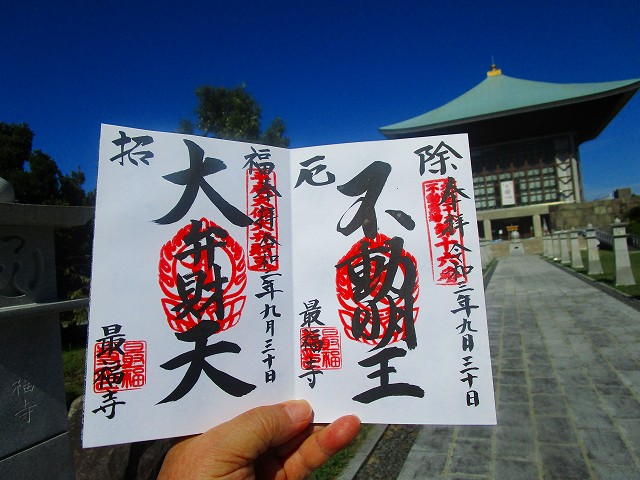 除
奉拝 令和三年九月三十日
不動明王
厄
最福寺
福
奉拝 令和三年九月三十日
大弁財天
招
最福寺
福寺